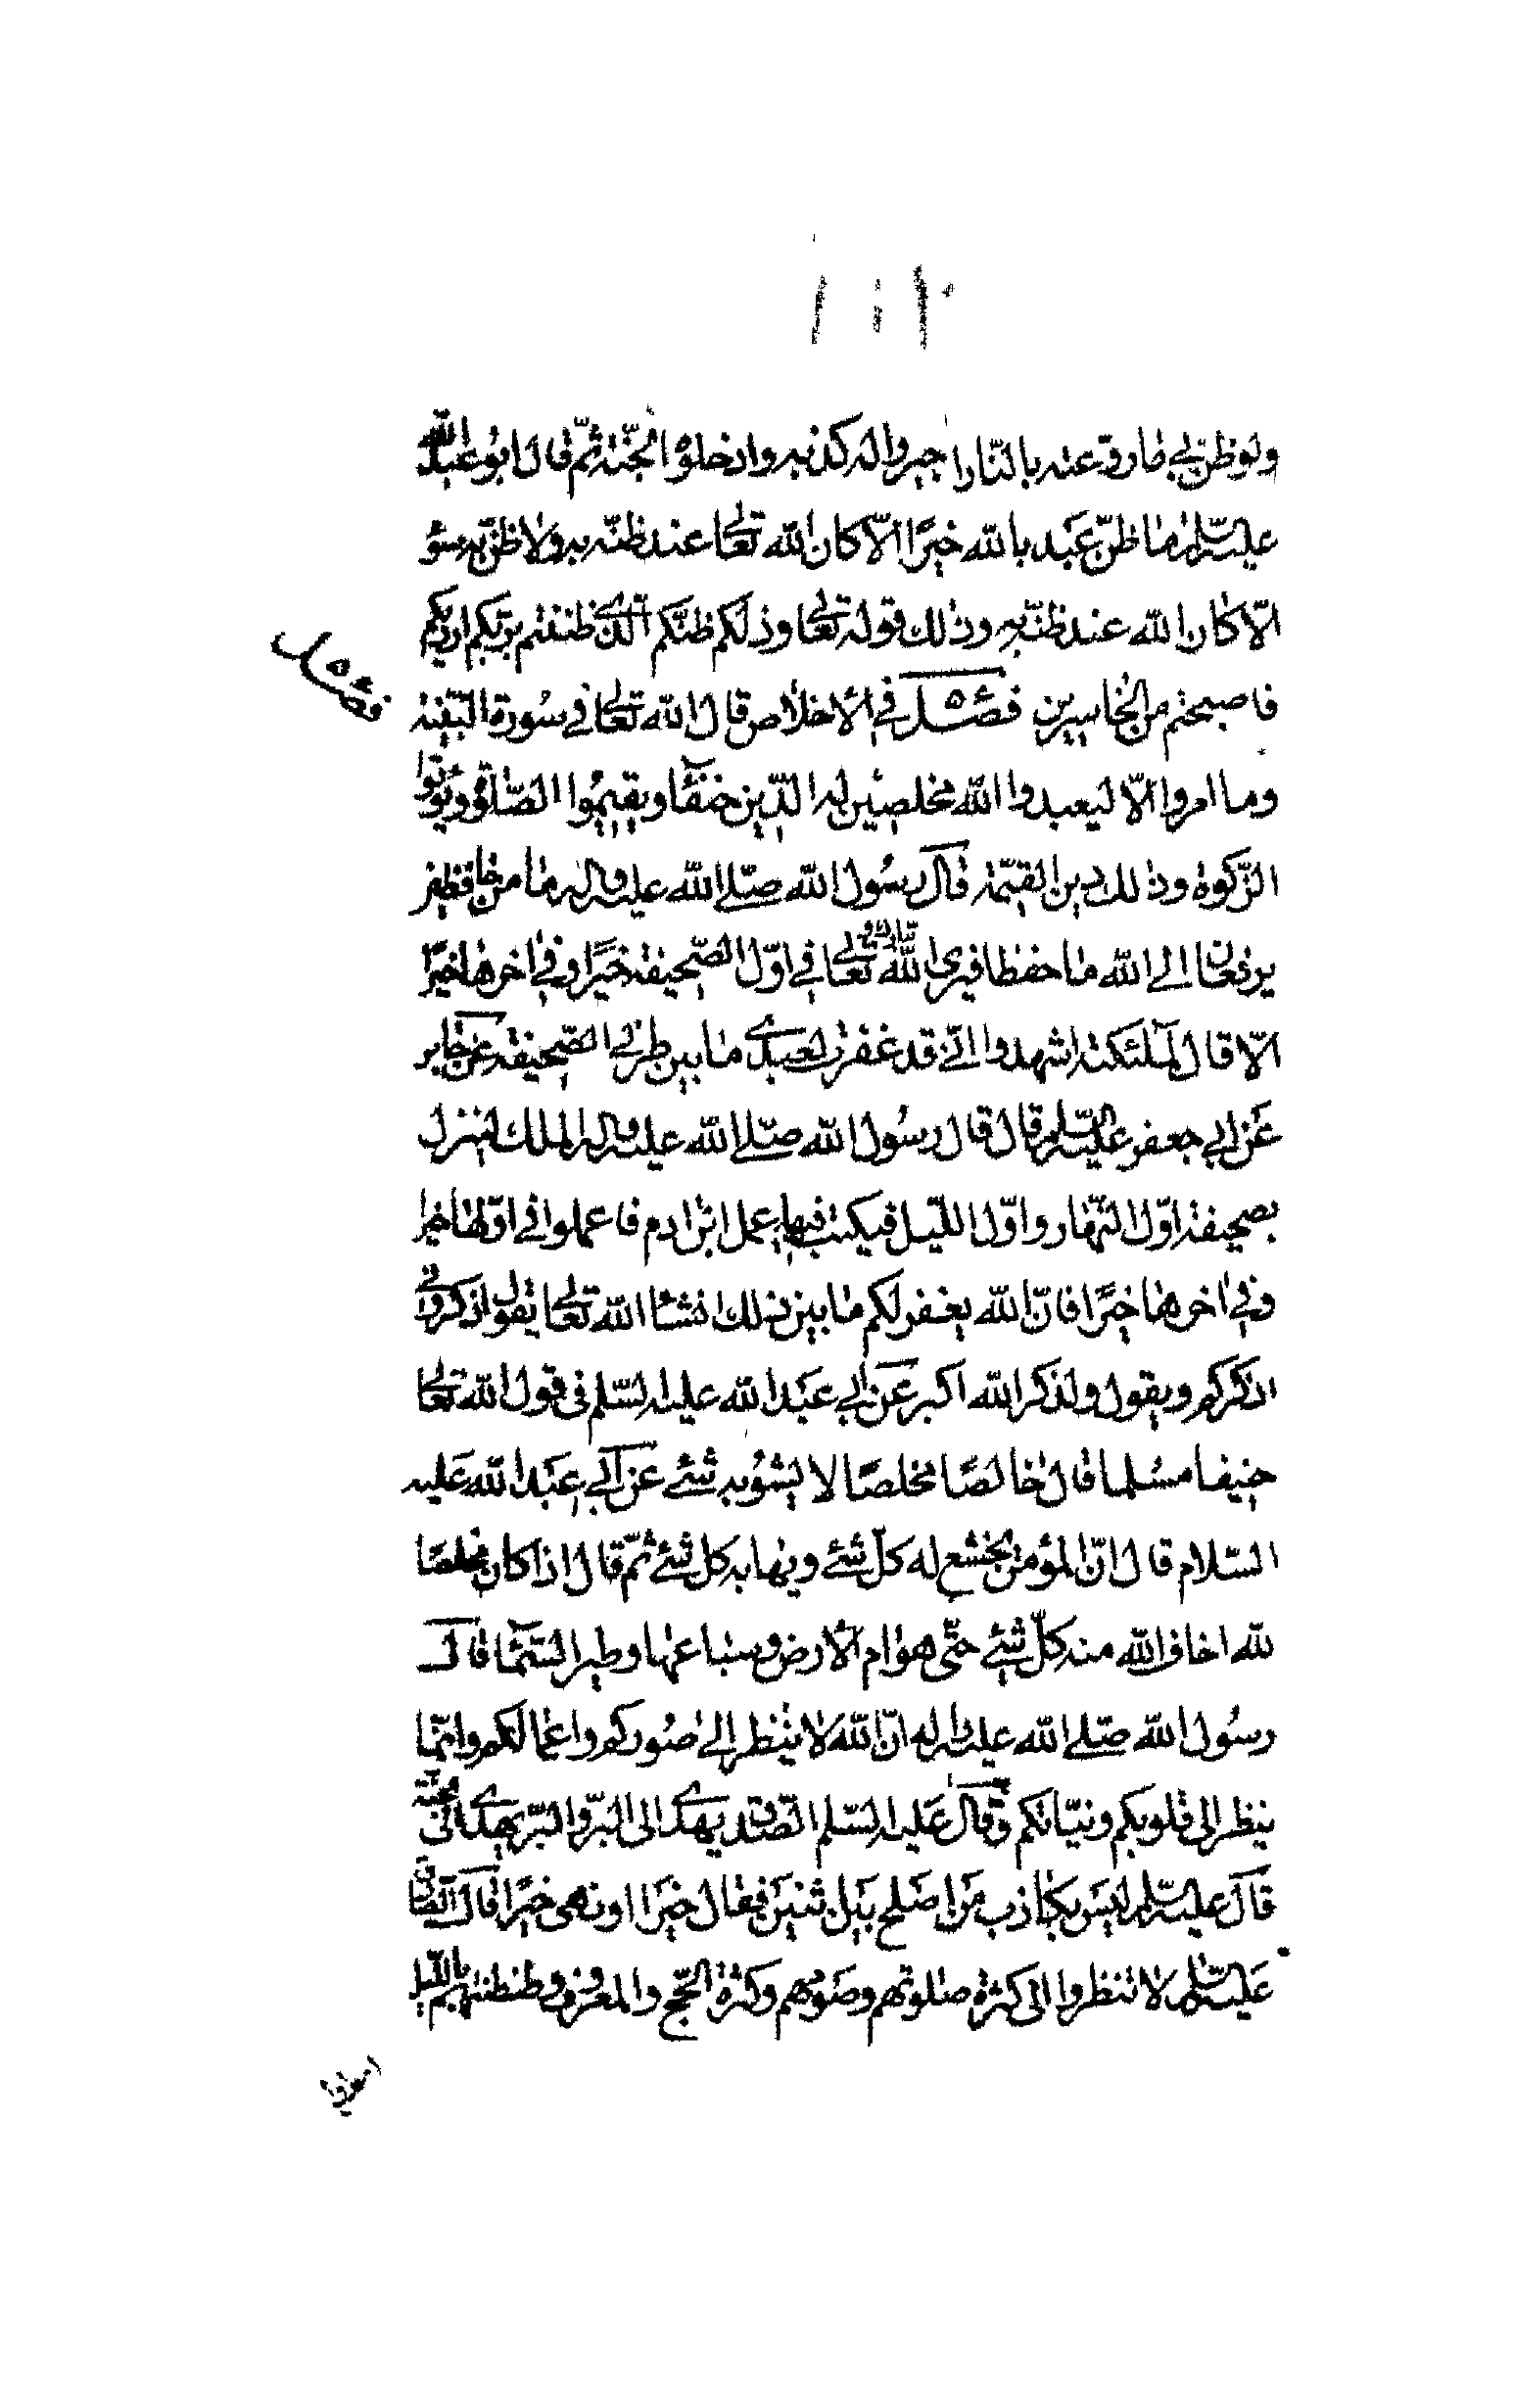 ولو ظن بي ما روعته بالنار اجيزوا له كذبه وادخلوه الجنّة ثمّ قال ابو عبد الله
عليه السّلم ما ظنّ عبد بالله خيرًا الّا كان الله تعالى عند ظنّه به ولا ظنّ به سوء
الّا كان الله عند ظنّه به وذلك قوله تعالى وذلكم ظنّكم الّذي ظننتم بربّكم ارديكم
فاصبحتم من الخاسرين فصل في الاخلاص قال الله تعالى في سورة البيّنة
وما امروا الّا ليعبدوا الله مخلصين له الدّين حنفآء ويقيموا الصّلوة ويؤتوا
الزّكوة وذلك دين القيّمة قال رسول الله صلّى الله عليه واله ما من حافظين
يرفعان الى الله ما حفظا فيرى الله تبارك و تعالى في اوّل الصّحيفة خيرًا وفي اخرها خيرًا
الّا قال لملئكته اشهدوا انّي قد غفرت لعبدي ما بين طرفي الصّحيفة عن جابر
عن ابي جعفر عليه السّلم قال قال رسول الله صلّى الله عليه واله الملك ينزل
بصحيفة اوّل النّهار واوّل اللّيل فيكتب فيها عمل ابن ادم فاعملوا في اوّلها خيرا
وفي اخرها خيرًا فانّ الله يغفر لكم ما بين ذلك انشاء الله تعالى يقول اذكروني
اذكركم ويقول ولذكر الله اكبر عن ابي عبد الله عليه السّلم في قول الله تعالى
حنيفا مسلما قال خالصًا مخلصًا لا يشوبه شئ عن ابي عبد الله عليه
السّلام قال انّ المؤمن يخشع له كلّ شئ ويهابه كل شئ ثمّ قال اذا كان مخلصًا
لله اخاف الله منه كلّ شئ حتّى هوام الارض وسباعها وطير السّمآء قال
رسول الله صلّى الله عليه واله انّ الله لا ينظر الى صوركم واعمالكم وانّما
ينظر الى قلوبكم ونيّاتكم وقال عليه السّلم الصّدق يهدى الى البرّ والبرّ يهدى الى الجنّة
قال عليه السّلم ليس بكاذب من اصلح بين اثنين فقال خيرا او نمى خيرًا قال الصّادق
عليه السّلم لا تنظروا الى كثرة صلوتهم وصومهم وكثرة الحّج والمعروف وطنطنتهم باللّيل
فصل